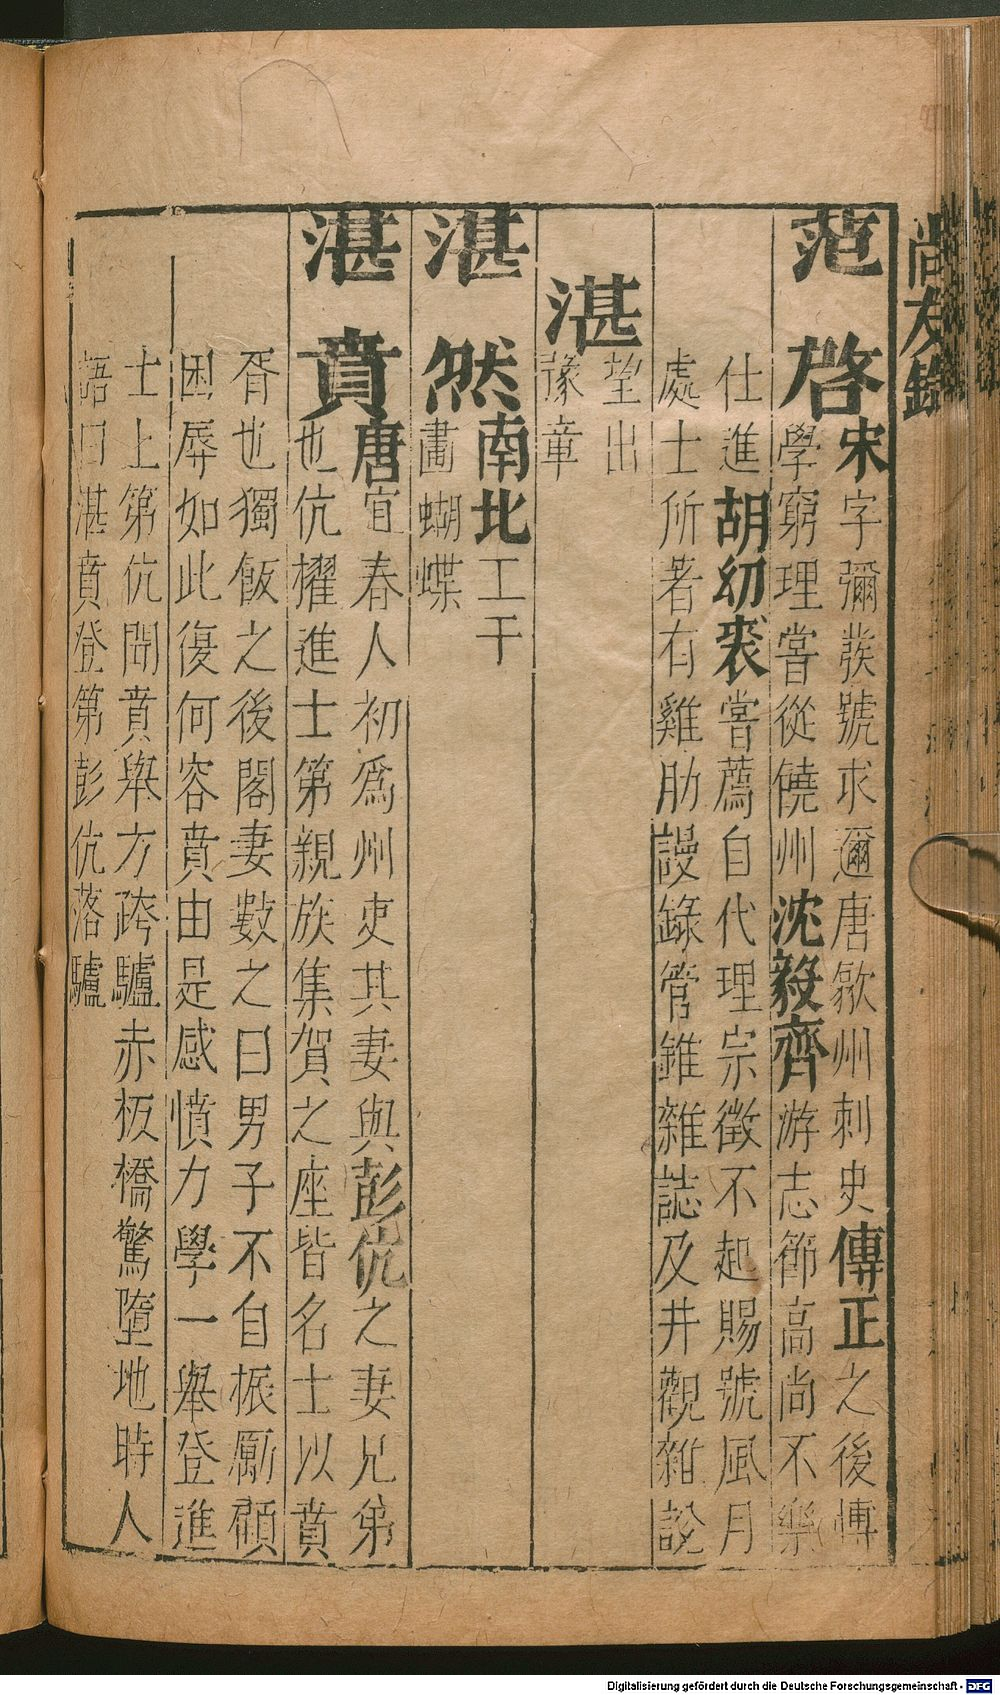 尚友錄
范啓
宋字彌發號求邇唐歙州刺史傳正之後博
學窮理嘗從饒州沈毅齊游志節高尚不樂
仕進胡幼裘嘗薦自代理宗徵不起賜號風月
處士所著有雞肋謾錄管錐雜誌及井觀雜說
湛
望出
豫章
湛然
南北工干
畫蝴蝶
湛賁
唐宜春人初爲州吏其妻與彭伉之妻兄弟
也伉擢進士第親族集賀之座皆名士以賁
胥也獨飯之後閣妻數之曰男子不自振厲顧
困辱如此復何容賁由是感憤力學一舉登進
士上第伉聞賁舉方跨驢赤板橋驚墮地時人
語曰湛賁登第彭伉落驢
Digitalisierung gefördert durch die Deutsche Forschungsgemeinschaft - DFG